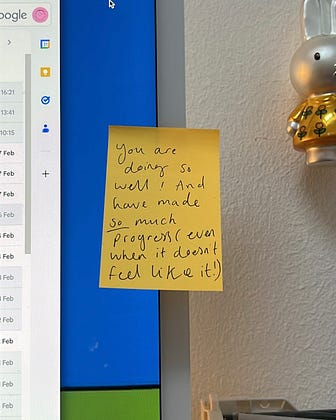 oogle
16:21
13:41
10:15
7 Feb
7 Feb
7 Feb
Feb
Feb
Feb
Feb
Feb
Feb
Feb
Feb
Feb
Feb
You are
doing so
well! And
have made
so much
progress (even
when it doesn't
feel like it!)